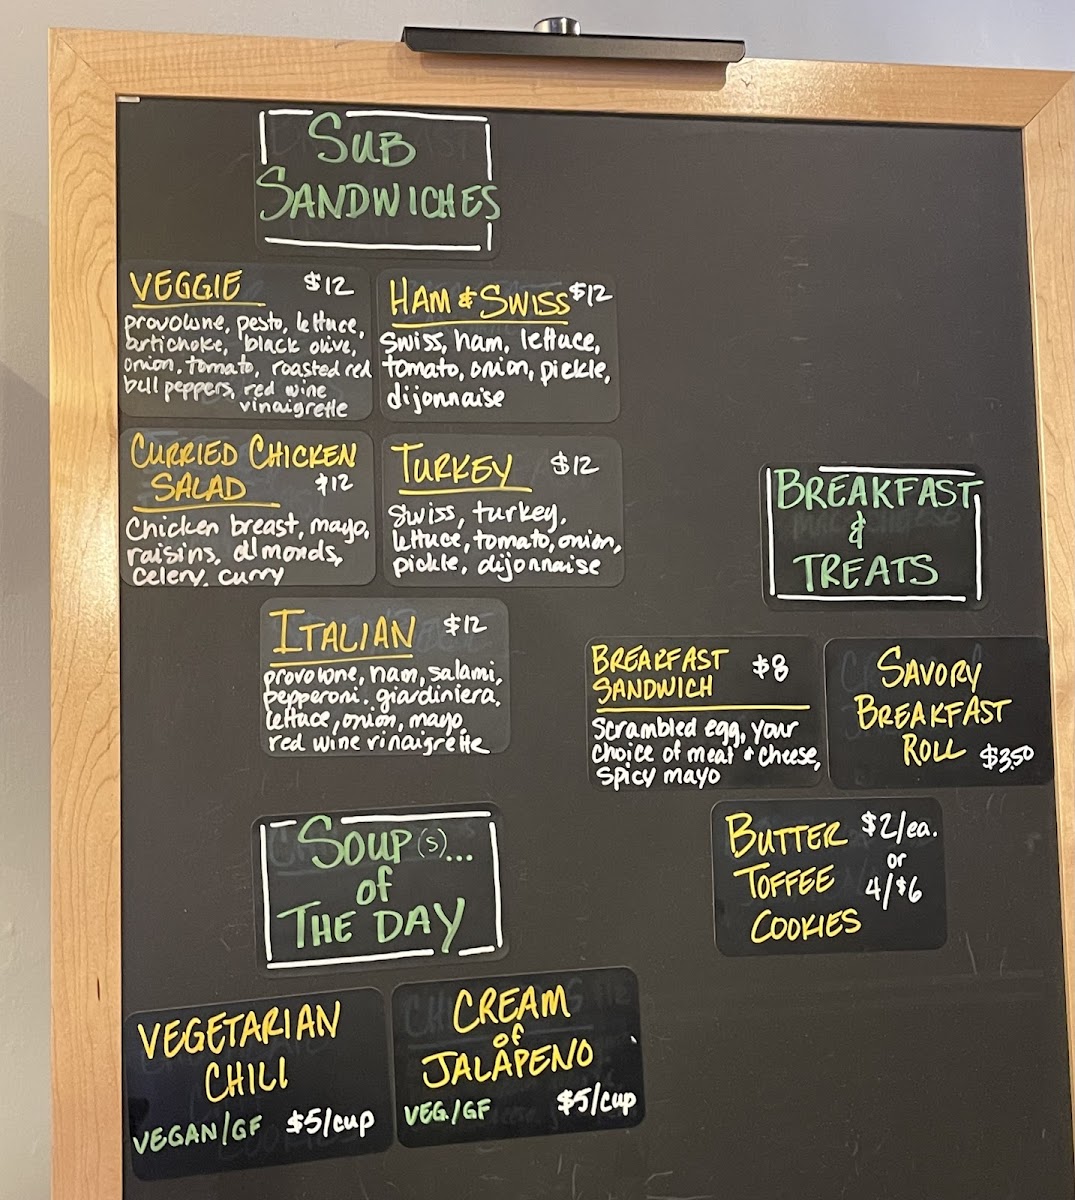 SUB
SANDWICHES
VEGGIE $12
provolone, pesto, lettuce,
artichoke, black olive,
onion, tomato, roasted red
bell peppers, red wine
vinaigrette
HAM & SWISS $12
Swiss, ham, lettuce,
tomato, onion, pickle,
dijonnaise
CURRIED CHICKEN
SALAD $12
Chicken breast, mayo,
raisins, almonds,
celery, curry
TURKEY $12
Swiss, turkey,
lettuce, tomato, onion,
pickle, dijonnaise
ITALIAN $12
provolone, ham, salami,
pepperoni, giardiniera,
lettuce, onion, mayo,
red wine vinaigrette
SOUP(S)...
of
THE DAY
VEGETARIAN
CHILI
VEGAN/GF $5/cup
CREAM
of
JALAPENO
VEG/GF $5/cup
BREAKFAST
&
TREATS
BREAKFAST
SANDWICH $8
Scrambled egg, your
choice of meat & cheese,
spicy mayo
SAVORY
BREAKFAST
ROLL $3.50
BUTTER $2/ea.
or
TOFFEE 4/$6
COOKIES